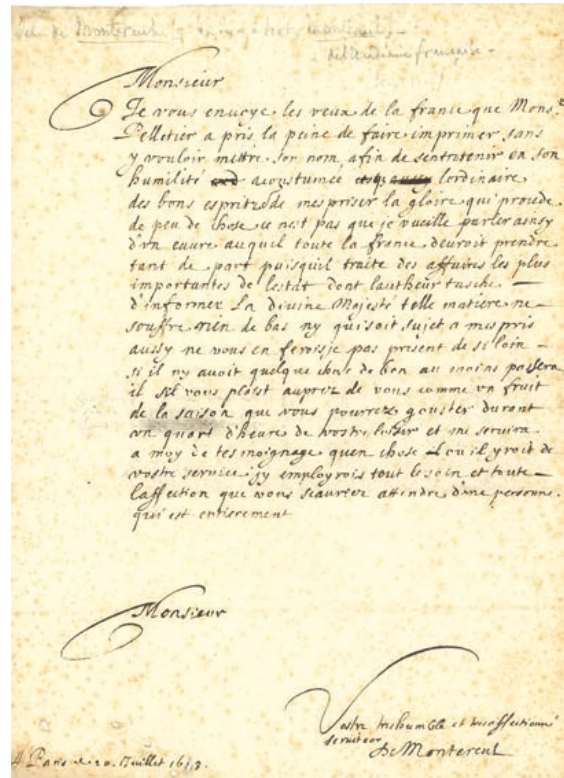 de Montereul
de l'Académie française
Monsieur
Je vous envoye les veux de la france que Mons.r
Pelletier a pris la peine de faire imprimer sans
y vouloir mettre son nom, afin de sentretenir en son
humilité acoustumee lordinaire
des bons espritz de mespriser la gloire qui procede
de peu de chose, ce nest pas que je vueille parler ainsy
d'vn euure auquel toute la france devroit prendre
tant de part puisquil traite des affaires les plus
importantes de lestat dont lautheur tasche
d'informer La divine Majesté telle matiere ne
souffre rien de bas ny qui soit sujet a mespris
aussy ne vous en feroisje pas présent de si loin
si il ny avoit quelque chose de bon au moins passera
il sil vous plaist auprez de vous comme vn fruit
de la saison que vous pourrez gouster durant
vn quart d'heure de vostre loisir et me servira
a moy de tesmoignage quen chose ou il yroit de
vostre service jy employrois tout le soin et toute
laffection que vous scauriez attendre d'vne personne
qui est entierement
Monsieur
Vostre treshumble et tresaffectionné
serviteur
De Montereul
A Paris ce 20. Juillet